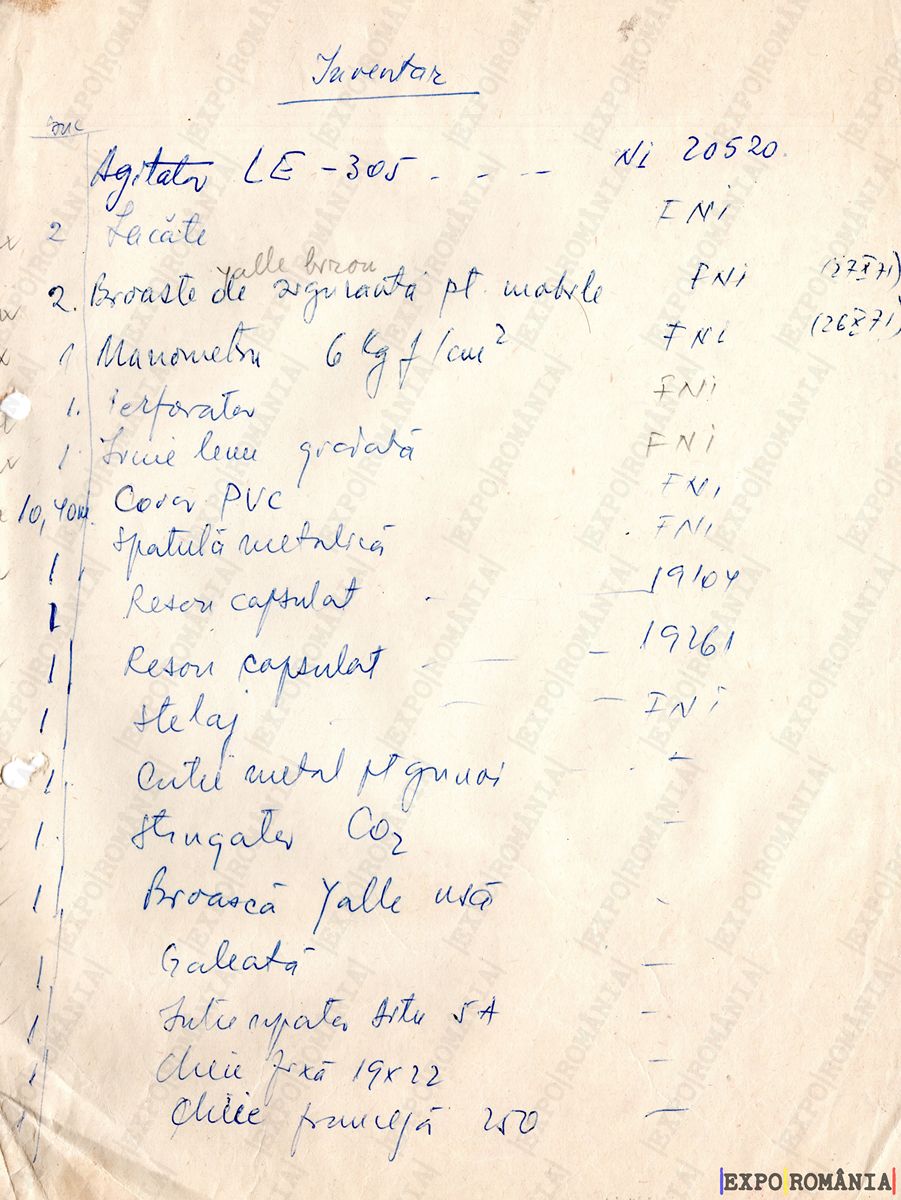 Inventar
buc
Agitator LE - 305 - - - Ni 20520.
2 Lacăte FNi
Yalle birou
2. Broaste de siguranta pt. mobile FNi (27 X 71)
1 Manometru 6 Kgf/cm² FNi (26 X 71)
1. Perforator FNi
1 Linie lemn gradată FNi
10,40m. Covor PVC FNi
1 Spatulă metalică FNi
1 Resou capsulat - 19104
1 Resou capsulat - - - 19261
1 Stelaj - - - FNi
1. Cutie metal pt gunoi -
1. Stingator CO2 -
1 Broască Yalle usă -
1 Galeată -
1 Intrerupator 5A -
1 Cheie fixă 19x22 -
1 Cheie franceză 250 -
EXPO ROMÂNIA